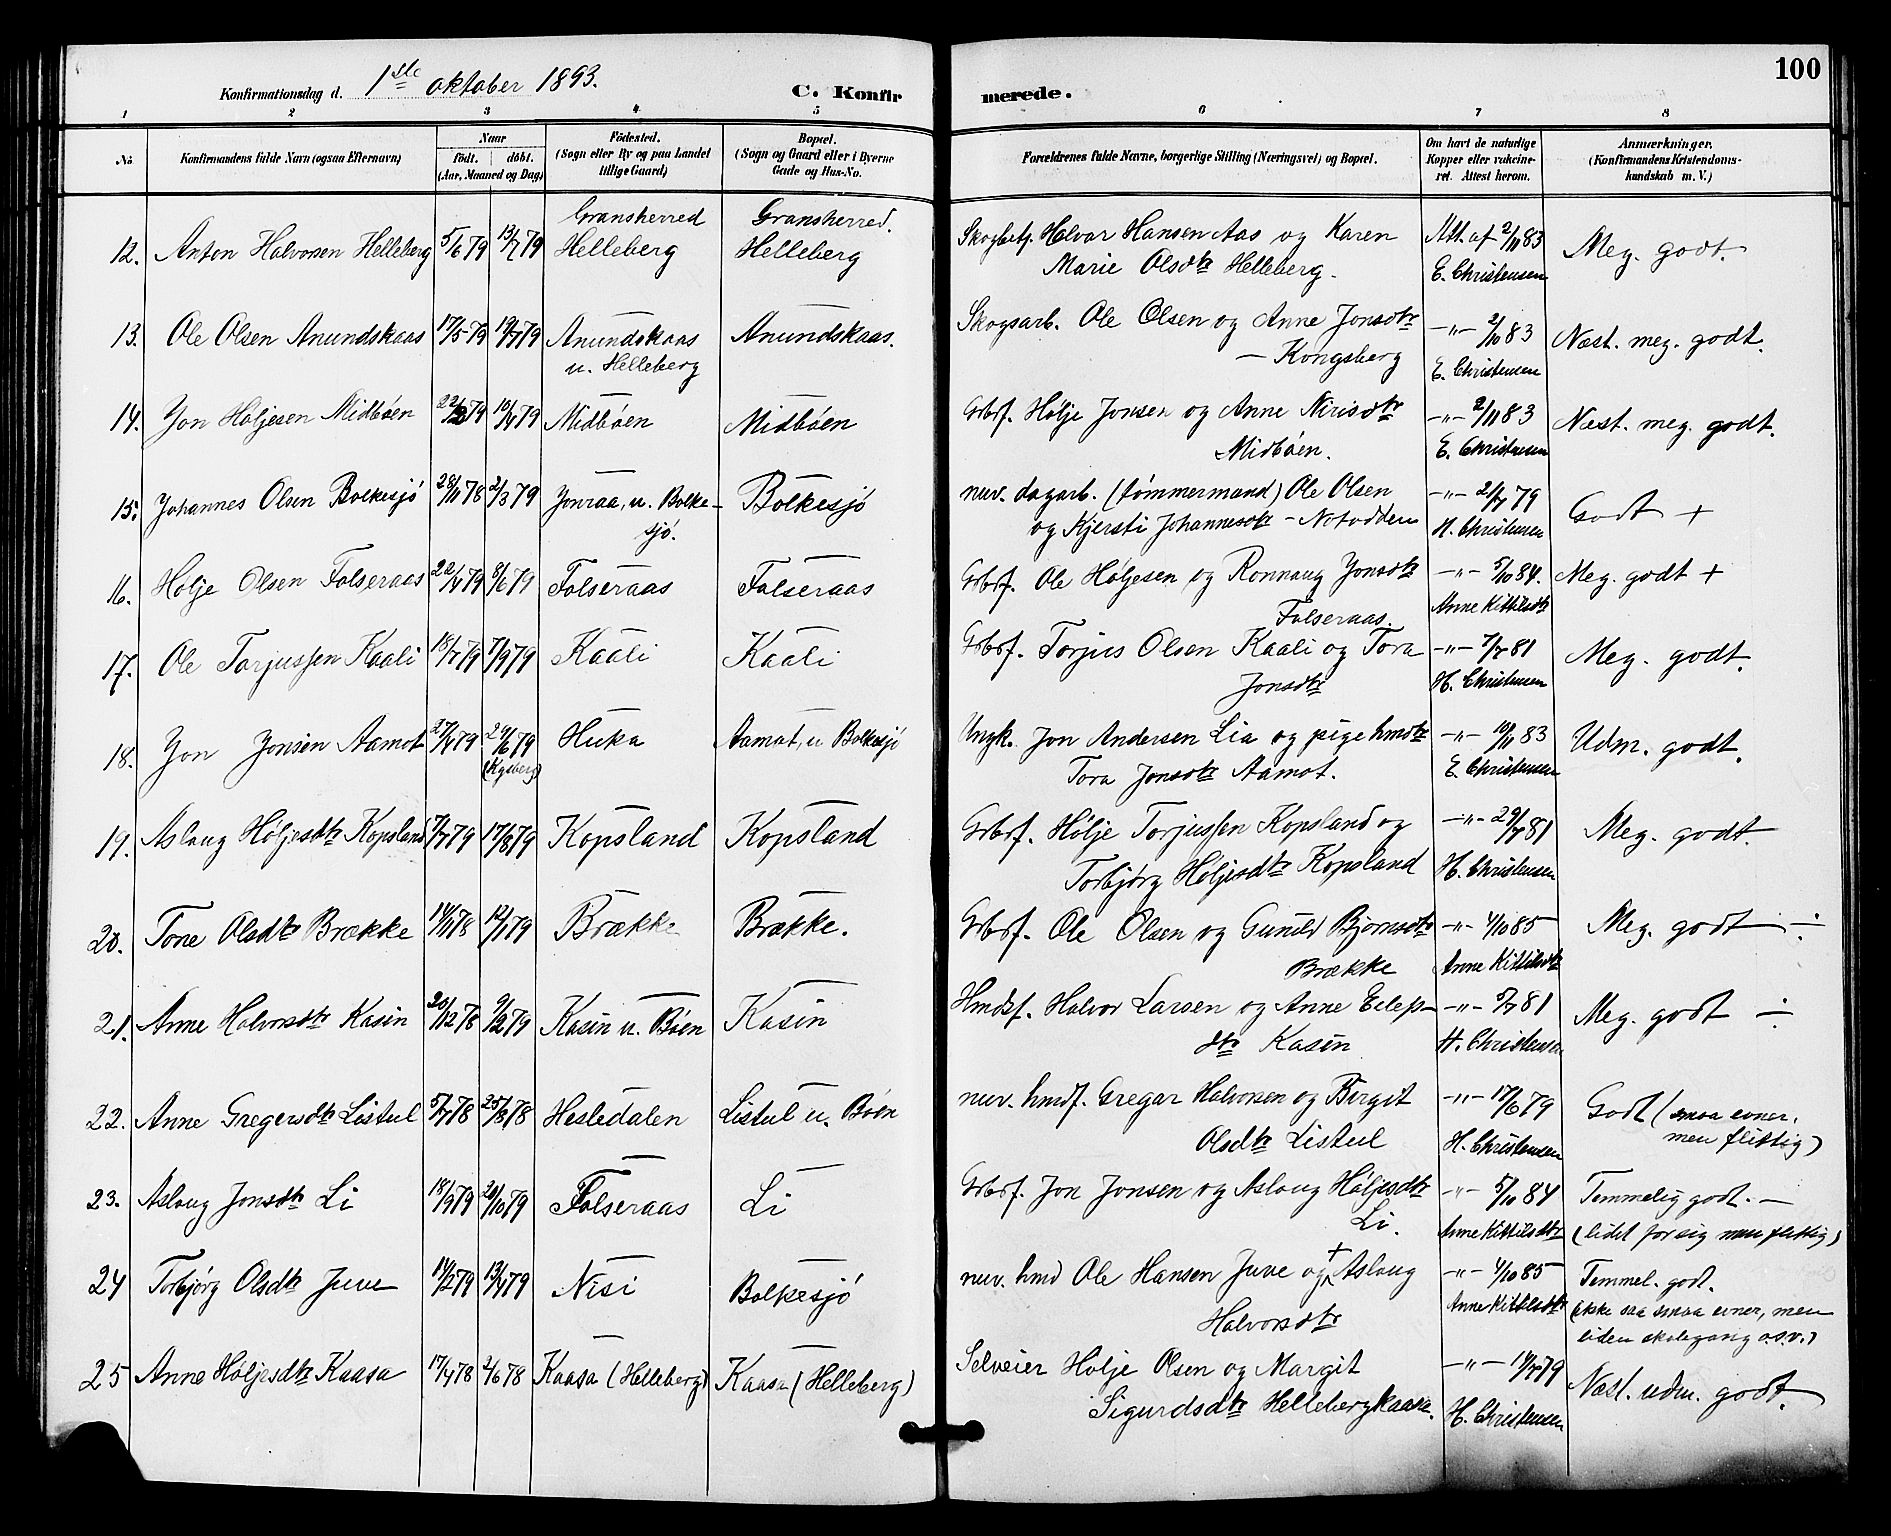 100
Konfirmationsdag d. 1ste oktober 1893.
C. Konfirmerede.
1 2 3 4 5 6 7 8
No
Konfirmandens fulde Navn (ogsaa Efternavn)
Naar
födt. döbt.
(Aar, Maaned og Dag)
Födested.
(Sogn eller By og paa Landet
tillige Gaard)
Bopæl.
(Sogn og Gaard eller i Byerne
Gade og Hus-No.
Forældrenes fulde Navne, borgerlige Stilling (Næringsvei) og Bopæl.
Om havt de naturlige
Kopper eller vakcine-
ret. Attest herom.
Anmærkninger.
(Konfirmandens Kristendoms-
kundskab m. V.)
12. Anton Halvorsen Helleberg 5/6 79 13/7 79 Gransherred Helleberg Gransherred. Helleberg Skogbetj. Halvor Hansen Aas og Karen
Marie Olsdtr Helleberg. Att. af 2/11 83 E. Christensen Meg. godt.
13. Ole Olsen Anundskaas 17/5 79 19/7 79 — Anundskaas u. Helleberg — Anundskaas. Skogsarb. Ole Olsen og Anne Jonsdtr
— Kongsberg —"— 2/10 83 E. Christensen Næst. meg. godt.
14. Jon Høljesen Midbøen 22/2 79 16/4 79 — Midbøen — Midbøen Gbrf. Hølje Jonsen og Anne Nirisdtr
Midbøen. —"— 2/11 83 E. Christensen Næst. meg. godt.
15. Johannes Olsen Bolkesjø 28/11 78 2/3 79 — Jonraa, u. Bolke-
sjø. — Bolkesjø nuv. dagarb. (tømmermand) Ole Olsen
og Kjersti Johannesdtr – Notodden —"— 2/7 79 H. Christensen Godt +
16. Hølje Olsen Folseraas 22/4 79 8/6 79 — Folseraas — Folseraas Gbrf. Ole Høljesen og Ronnaug Jonsdtr
Folseraas. —"— 5/10 84. Anne Kittilsdtr Meg. godt +
17. Ole Torjussen Kaali 18/7 79 7/9 79 — Kaali — Kaali Gbrf. Torjus Olsen Kaali og Tora
Jonsdtr —"— 7/7 81 H. Christensen Meg. godt.
18. Jon Jonsen Aamot 27/4 79 29/6 79 (Kgsberg) — Huka — Aamot, u Bolkesjø Ungk. Jon Andersen Lia og pige hmdtr
Tora Jonsdtr Aamot. —"— 10/11 83 E. Christensen Udm. godt.
19. Aslaug Høljesdtr Kopsland 7/7 79 17/8 79 — Kopsland — Kopsland Gbrf. Hølje Torjussen Kopsland og
Torbjørg Høljesdtr Kopsland —"— 29/7 81 H. Christensen Meg. godt.
20. Tone Olsdtr Brække 14/11 78 12/1 79 — Brække — Brække. Gbrf. Ole Olsen og Gunild Bjørnsdtr
Brække —"— 4/10 85 Anne Kittilsdtr Meg. godt ÷
21. Anne Halvorsdtr Kasin 20/12 78 9/2 79 — Kasin u. Bøen — Kasin Hmdsf. Halvor Larsen og Anne Eilep-
dtr Kasin —"— 5/7 81 H. Christensen Meg. godt ÷
22. Anne Gregersdtr Listul 5/7 78 25/8 78 — Hesledalen — Listul u. Bøen nuv. hmdf. Gregar Halvorsen og Birgit
Olsdtr Listul —"— 17/6 79 H. Christensen Godt (smaa evner,
men flittig)
23. Aslaug Jonsdtr Li 18/9 79 20/10 79 — Folseraas — Li Gbrf. Jon Jonsen og Aslaug Høljesdtr
Li. —"— 5/10 84 Anne Kittilsdtr Temmelig godt. —
(lidet for sig men flittig)
24 Torbjørg Olsdtr Juve 14/2 79 13/4 79 — Nisi — Bolkesjø nuv. hmd Ole Hansen Juve og + Aslaug
Halvorsdtr —"— 4/10 85 Anne Kittilsdtr Temmel. godt.
(ikke saa smaa evner, men
liden skolegang o.s.v.)
25 Anne Høljesdtr Kaasa 17/4 78 2/6 78 — Kaasa (Helleberg) — Kaasa (Helleberg) Selveier Hølje Olsen og Margit
Sigurdsdtr Hellebergkaasa. —"— 14/7 79 H. Christensen Næst. udm. godt.